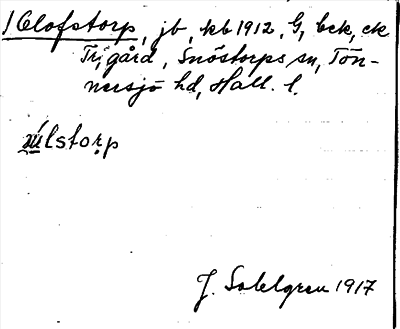 1 Olofstorp, jb, kb 1912, G, bek, ek
Tr, gård, Snöstorps sn, Tön-
nersjö hd, Hall. l.
úlstorp
J. Sahlgren 1917